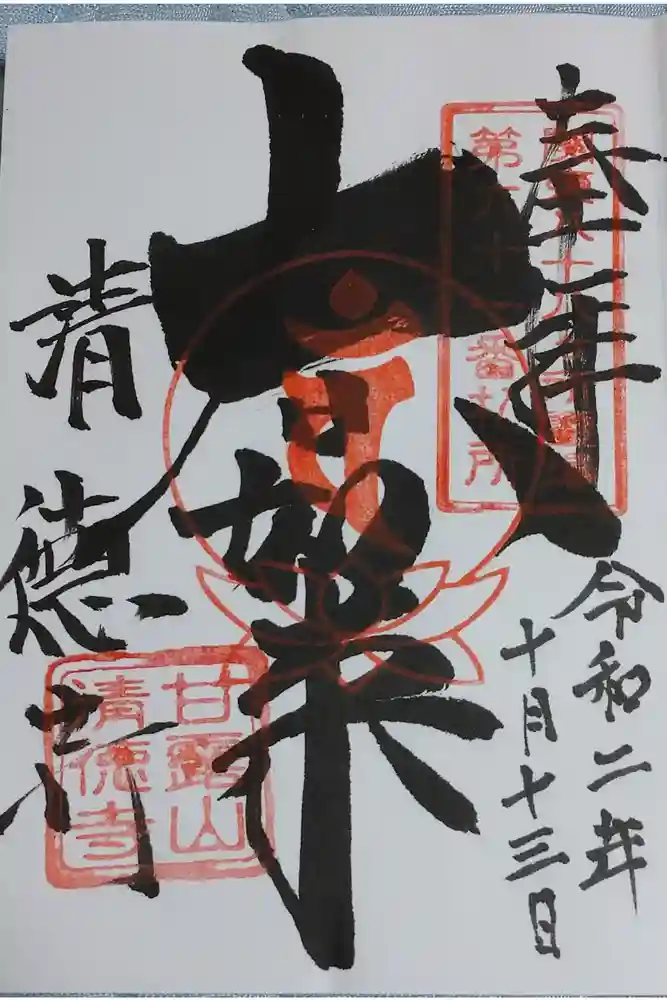 奉拝
番札所
令和二年
十月十三日
大日如来
清徳寺
甘露山
清徳寺